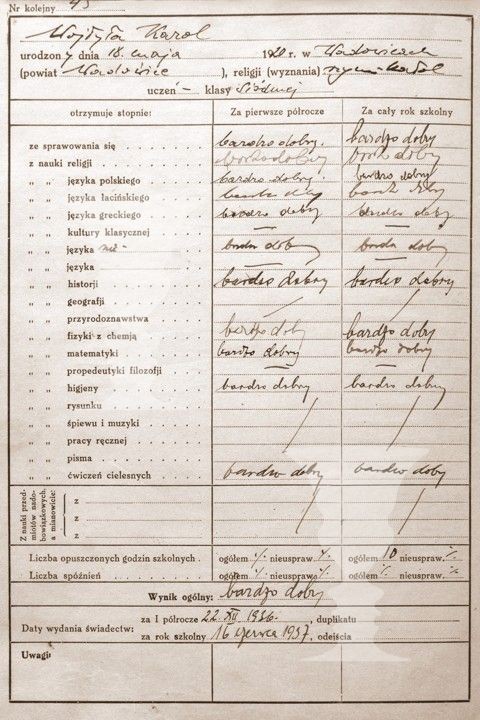 Nr kolejny 45
Wojtyła Karol
urodzony dnia 18. maja 1920 r. w Wadowicach
(powiat Wadowice ), religii (wyznania) rzym.-katol
uczeń – klasy siódmej
otrzymuje stopnie: Za pierwsze półrocze Za cały rok szkolny
ze sprawowania się bardzo dobry. bardzo dobry
z nauki religji bardzo dobry bardz dobry
„ „ języka polskiego bardzo dobry. bardzo dobry
„ „ języka łacińskiego bardz dobry bardz dobry
„ „ języka greckiego bardzo dobry bardzo dobry
„ „ kultury klasycznej — —
„ „ języka nie- bardzo dobry bardzo dobry
„ „ języka
„ „ historji bardzo dobry bardzo dobry
„ „ geografji
„ „ przyrodoznawstwa
„ „ fizyki z chemją bardzo dobry bardzo dobry
„ „ matematyki bardzo dobry bardzo dobry
„ „ propedeutyki filozofji — —
„ „ higjeny bardzo dobry bardzo dobry
„ „ rysunku
„ „ śpiewu i muzyki
„ „ pracy ręcznej
„ „ pisma
„ „ ćwiczeń cielesnych bardzo dobry bardzo dobry
Z nauki przed-
miotów nado-
bowiązkowych,
a mianowicie:
z
z
z
Liczba opuszczonych godzin szkolnych ogółem ·/. nieuspraw. ·/. ogółem 10 nieuspraw. ·/.
Liczba spóźnień ogółem ·/. nieuspraw. ·/. ogółem ·/. nieuspraw. ·/.
Wynik ogólny: bardzo dobry
Daty wydania świadectw:
za I półrocze 22. XII 1936., duplikatu
za rok szkolny 16 czerwca 1937, odejścia
Uwagi: